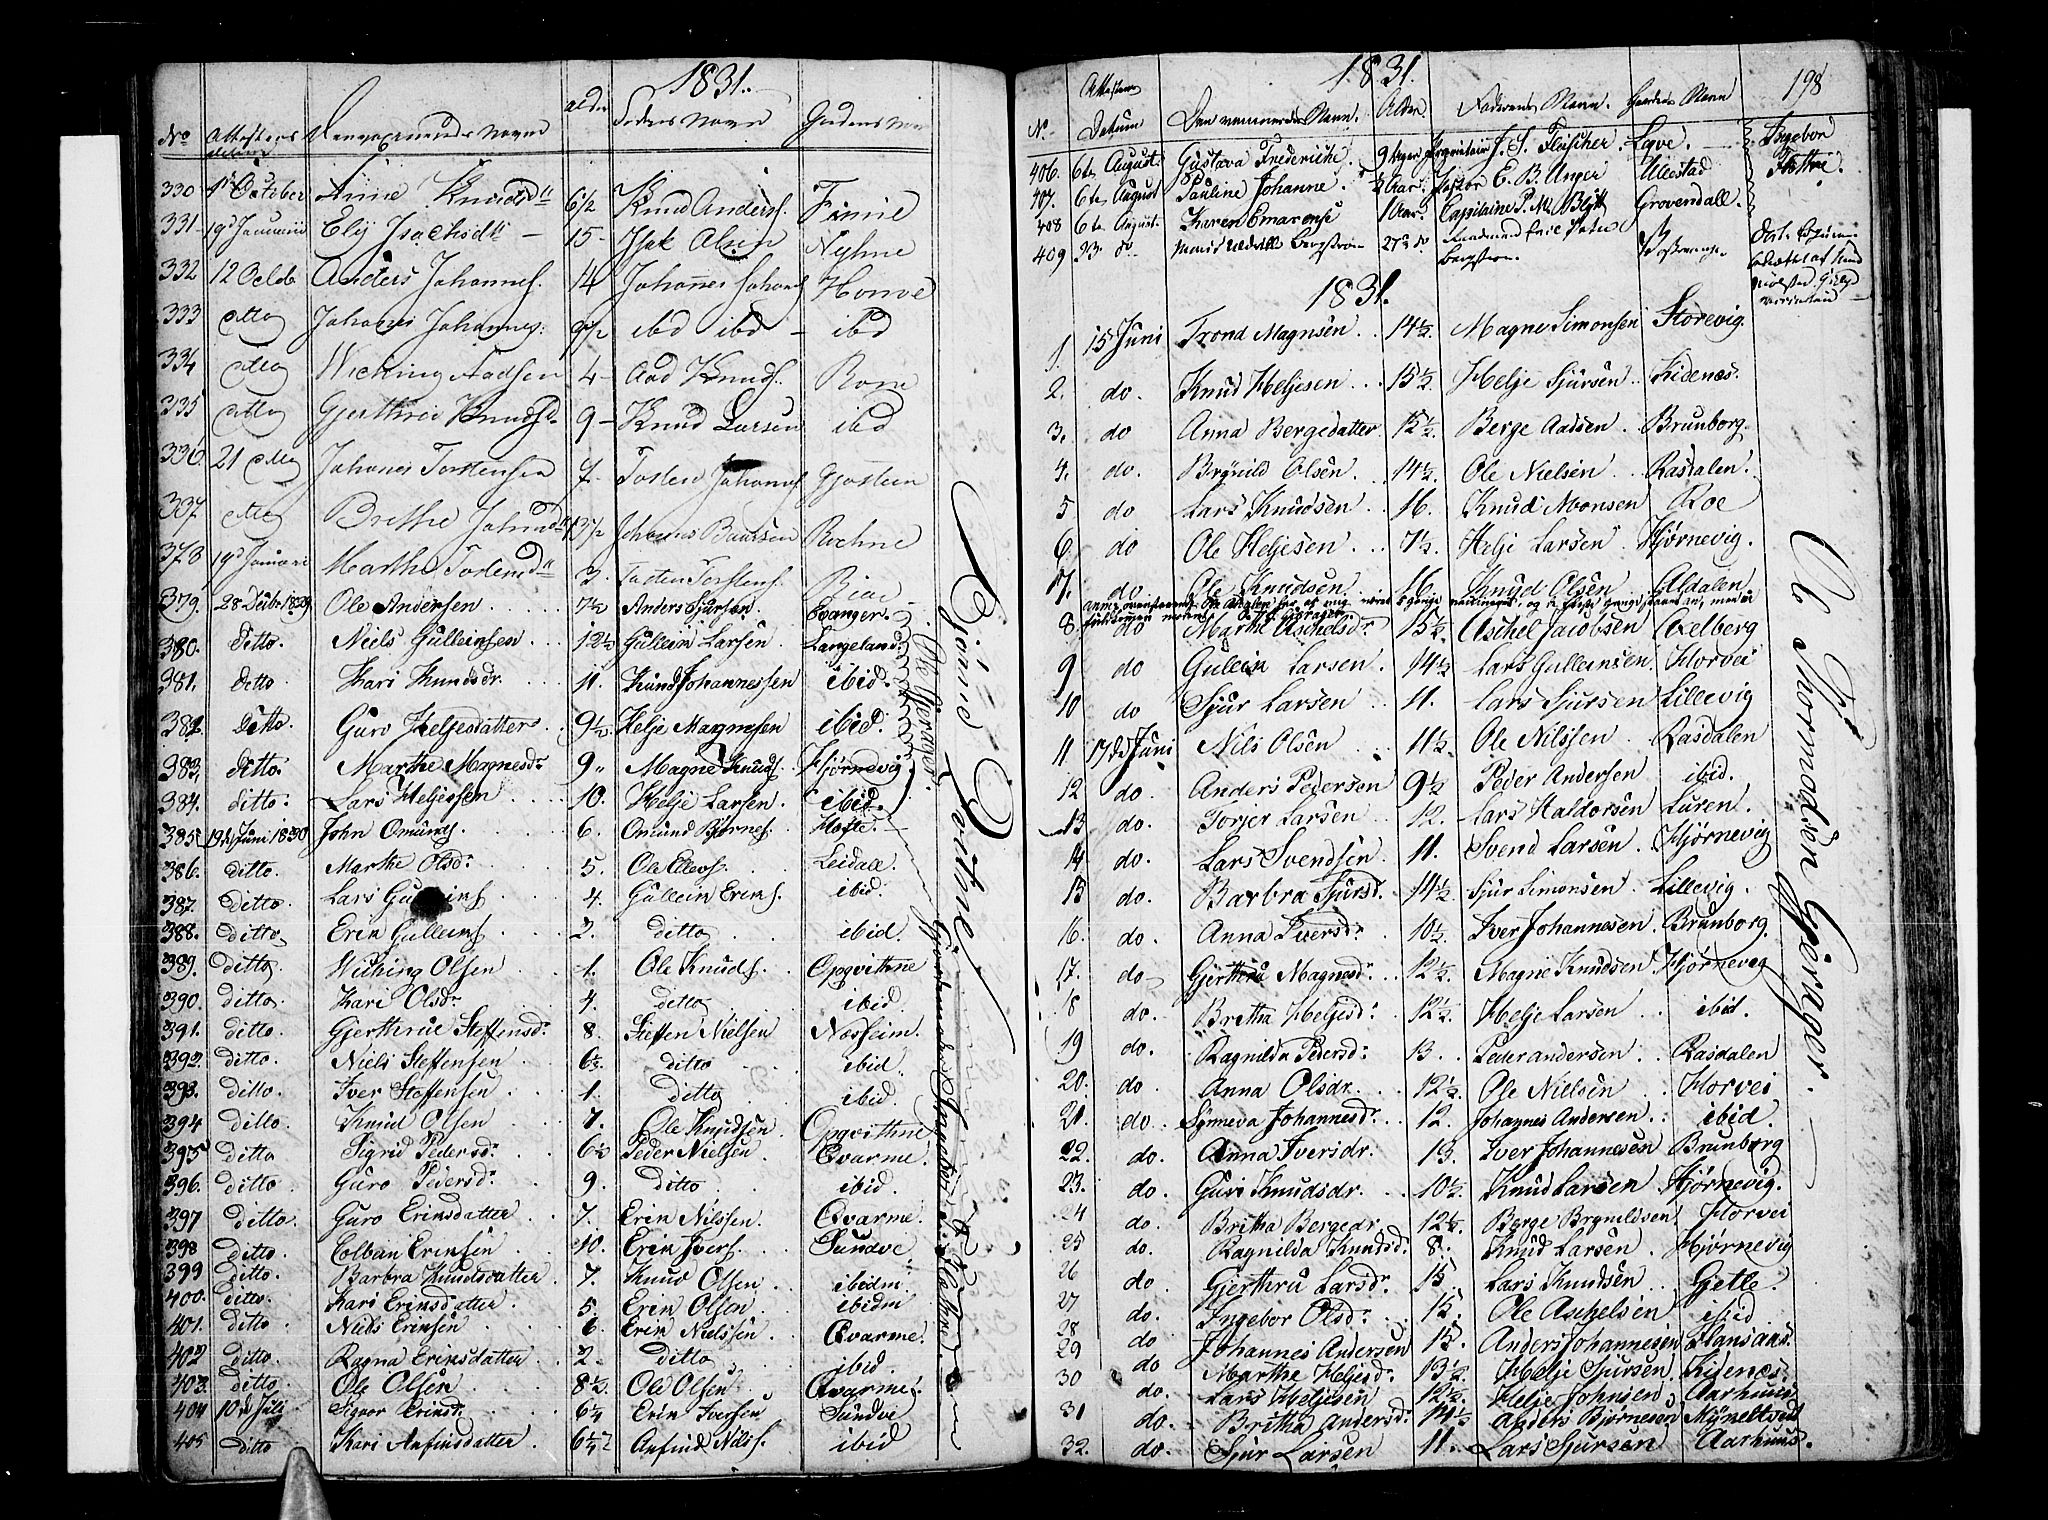 1831.
No
Attestens datum
Alder
Fadrens Navn
Gaardens Navn
330 October Anne Knudsd. 6 1/2 Knud Anders. Finne
331 19d Januari Elj Isachsdtt 15 Isak Olsen Nyhne
332 12 Octb. Anders Johannes. 14 Johannes Johans Honve
333 ditto Johannes Johannes. 9 1/2 ibd ibd ibd
334 ditto Wiching Aadsen 4 Aad Knuds. Rone
335 ditto Gjerthrud Knudsd. 9 Knud Larsen ibd
336 21 ditto Johanes Torstensen 7 Tosten Johannes Gjosteen
337 ditto Brithe Johansd 13 1/2 Johannes Baarsen Rochne
378 19d Januari Marthe 3. Tosten Torstens.
379. 28 Decbr. 1829. Ole Andersen 7 1/2 Anders Sjursen. Evanger.
380. Ditto. Niels Gulleinsen 12 1/2 Gullein Larsen. Langeland.
381. Ditto Kari Knudsdr. 11. Knud Johannessen ibid.
382 Ditto. Guro Heljesdatter 9 1/2 Helje Magnesen ibid.
383. ditto. Marthe Magnesdr. 9 Magne Knuds. Hjørnevig
384. ditto. Lars Heljessen 10. Helje Larsen ibid.
385 19d Juni 1830 John Omunds. 6. Omund Bjørnes. Hæfte.
386. ditto. Marthe Olsdr. 5. Ole Ellevs. Leidall.
387. ditto. Lars 4. Gullein Erics. ibid.
388. ditto Eric Gulleins. 2. ditto ibid.
389. ditto Wiching Olsen 1. Ole Knuds. Opqvithne
390. ditto. Kari Olsdr. 4. ditto ibid.
391. ditto. Gjerthrue Steffensdr. 8. Steffen Nielsen Næsheim.
392. ditto. Niels Steffensen 6 1/2 ditto ibid.
393. ditto. Iver Steffensen 1. ditto ibid.
394 ditto Knud Olsen 7. Ole Knudsen Opqvithne
395 ditto Sigrid Pedersdr. 6 1/2 Peder Nielsen Qvarme.
396. ditto Guro Pedersd. 9. ditto. ibid.
397 ditto. Guro Ericsdatter 7. Eric Nilssen. Qvarme.
398 ditto. Colbein Ericsen 10. Eric Ivers. Sundve
399 ditto. Barbra Knudsdatter 7. Knud Olsen ibidm
400. ditto. Kari Ericsdatter 5. Eric Olsen ibidm
401. ditto. Niels Ericsen 6. Eric Nielssen Qvarme.
402 ditto. Ragna Ericsdatter 2 ditto ibid.
403. ditto Ole Olsen 8 1/2 Ole Olsen Qvarme.
404 10d Juli Signor Ericsd. 6 1/4 Eric Iversen Sundve
405 ditto Kari Anfindsdatter 6 1/4 Anfind Nils. ibid
Ole Gjerager.
Bjørne Qvithne
Gjordemoder Ingebor
1831.
198
No. Attestens Datum Den vaccineredes Navn. Alder Faderens Navn. Gaardens Navn
406. 6te August. Gustava Friderichе. J. S. Fleischer. Ingebor
407. 6te August Pauline Johanne. Aar. Pastor E. B. Unger Ullestad Flatke.
408 6te August. Karen 1 Aar. Capitaine P. M. Blytt Grovendall.
409 23 do Bergstrøm 27 do
Bergstrøm.
1831.
1. 15 Juni Trond Magnsen 14 1/2. Magne Simonsen Storevig.
2. do. Knud Heljesen 15 1/2. Helje Sjursen Kidenæs.
3. do Anna Bergesdatter 12 1/2. Berge Aadsen Brunborg
4. do. Brynild Olsen 14 1/2 Ole Nielsen Rasdalen.
5 do Lars Knudsen 16. Knud Monsen Roe
6. do Ole Heljesen 7 1/2. Helje Larsen Hjørnevig.
7. do Ole Knudsen. 16 Knud Olsen Aldalen
8. do Marthe Aschelsd. 15 1/2 Aschel Jacobsen Axelberg
9 do Gullein Larsen 14 1/2 Lars Gulleinsen Horvei
10 do Sjur Larsen 11. Lars Sjursen Lillevig
11 17de Juni Nils Olsen 11 1/2 Ole Nilssen Rasdalen
12 do. Anders Pedersen 9 1/2 Peder Andersen ibid.
13 do. Torjer Larsen 12. Lars Haldorsen Luren.
14 do. Lars Svendsen 11. Svend Larsen Hjørnevig
15 do. Barbra Sjursd. 14 1/2 Sjur Simonsen Lillevig.
16. do. Anna Iversdr. 10 1/2. Iver Johannesen Brunborg.
17. do Gjerthru Magnesdr. 12 1/2 Magne Knudsen Hjørnevig
18 do. Britha Heljesdr. 12 1/2. Helje Larsen ibid.
19 do. Ragnilda Pedersdr. 13. Peder andersen Rasdalen
20. do. Anna Olsdr. 12 1/2. Ole Nielsen Horvei
21. do. Synneva Johannesdr. 12. Johannes Andersen ibid.
22. do. Anna Iversdr. 13. Iver Johannesen Brunborg
23. do. Guri Knudsdr. 10 1/2. Knud Larsen Hjørnevig.
24 do. Britha Bergedr. 12 1/2. Berge Brynildsen Horvei
25 do. Ragnilda Knudsdr. 8. Knud Larsen Hjørnevig
26 do. Gjerthru Larsdr. 15 Lars Knudsen Gjelle.
27 do. Ingebor Olsdr. 15. Ole Aschelsen ibid.
28 do Johannes Andersen 15. Anders Johannesen
29 do Marthe Heljesdr. 13 1/2. Helje Sjursen Kidenæs.
30 do. Lars Heljesen 12 1/2. Helje Johnsen Aarhuus
31 do. Britha Andersdr. 14 1/2 Anders Bjørnesen
32. do. Sjur Larsen 11. Lars Sjursen Aarhuus.
Ole Thormodsen Gjerager.